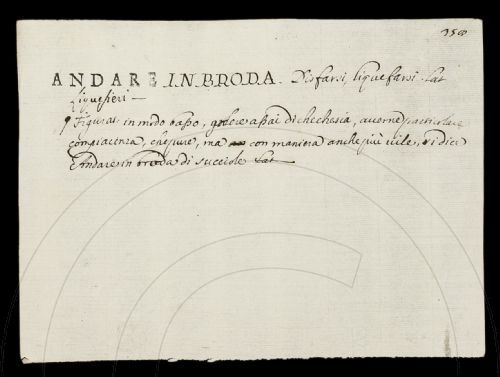 358
ANDARE IN BRODA. Disfarsi, liquefarsi. Lat.
Liquefieri —
¶ Figurat. in modo basso, godere assai di chechesia, averne particolare
compiacenza, che pure, ma con maniera anche più vile, si dice
Andare in broda di succiole Lat.